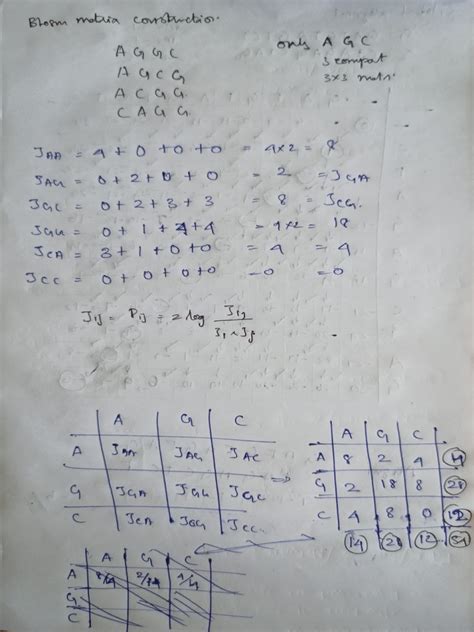 Blosm matrix construction
A G G C
A G C G
A C G G
C A G G
only A G C
3 compat
3x3 matri
JAA = 4 + 0 + 0 + 0 = 4x2 = 8
JAG = 0 + 2 + 0 + 0 = 2 = JGA
JGC = 0 + 2 + 3 + 3 = 8 = JCG.
JGG = 0 + 1 + 4 + 4 = 9x2 = 18
JCA = 3 + 1 + 0 + 0 = 4 = 4
JCC = 0 + 0 + 0 + 0 = 0 = 0
Jij = Pij = 2 log Jij / Ji x Jj
A G C
A JAA JAG JAC
G JGA JGG JGC
C JCA JCG JCC
A G C
A 8 2 4 14
G 2 18 8 28
C 4 8 0 12
14 28 12 54
A G C
A 2/14
G
C